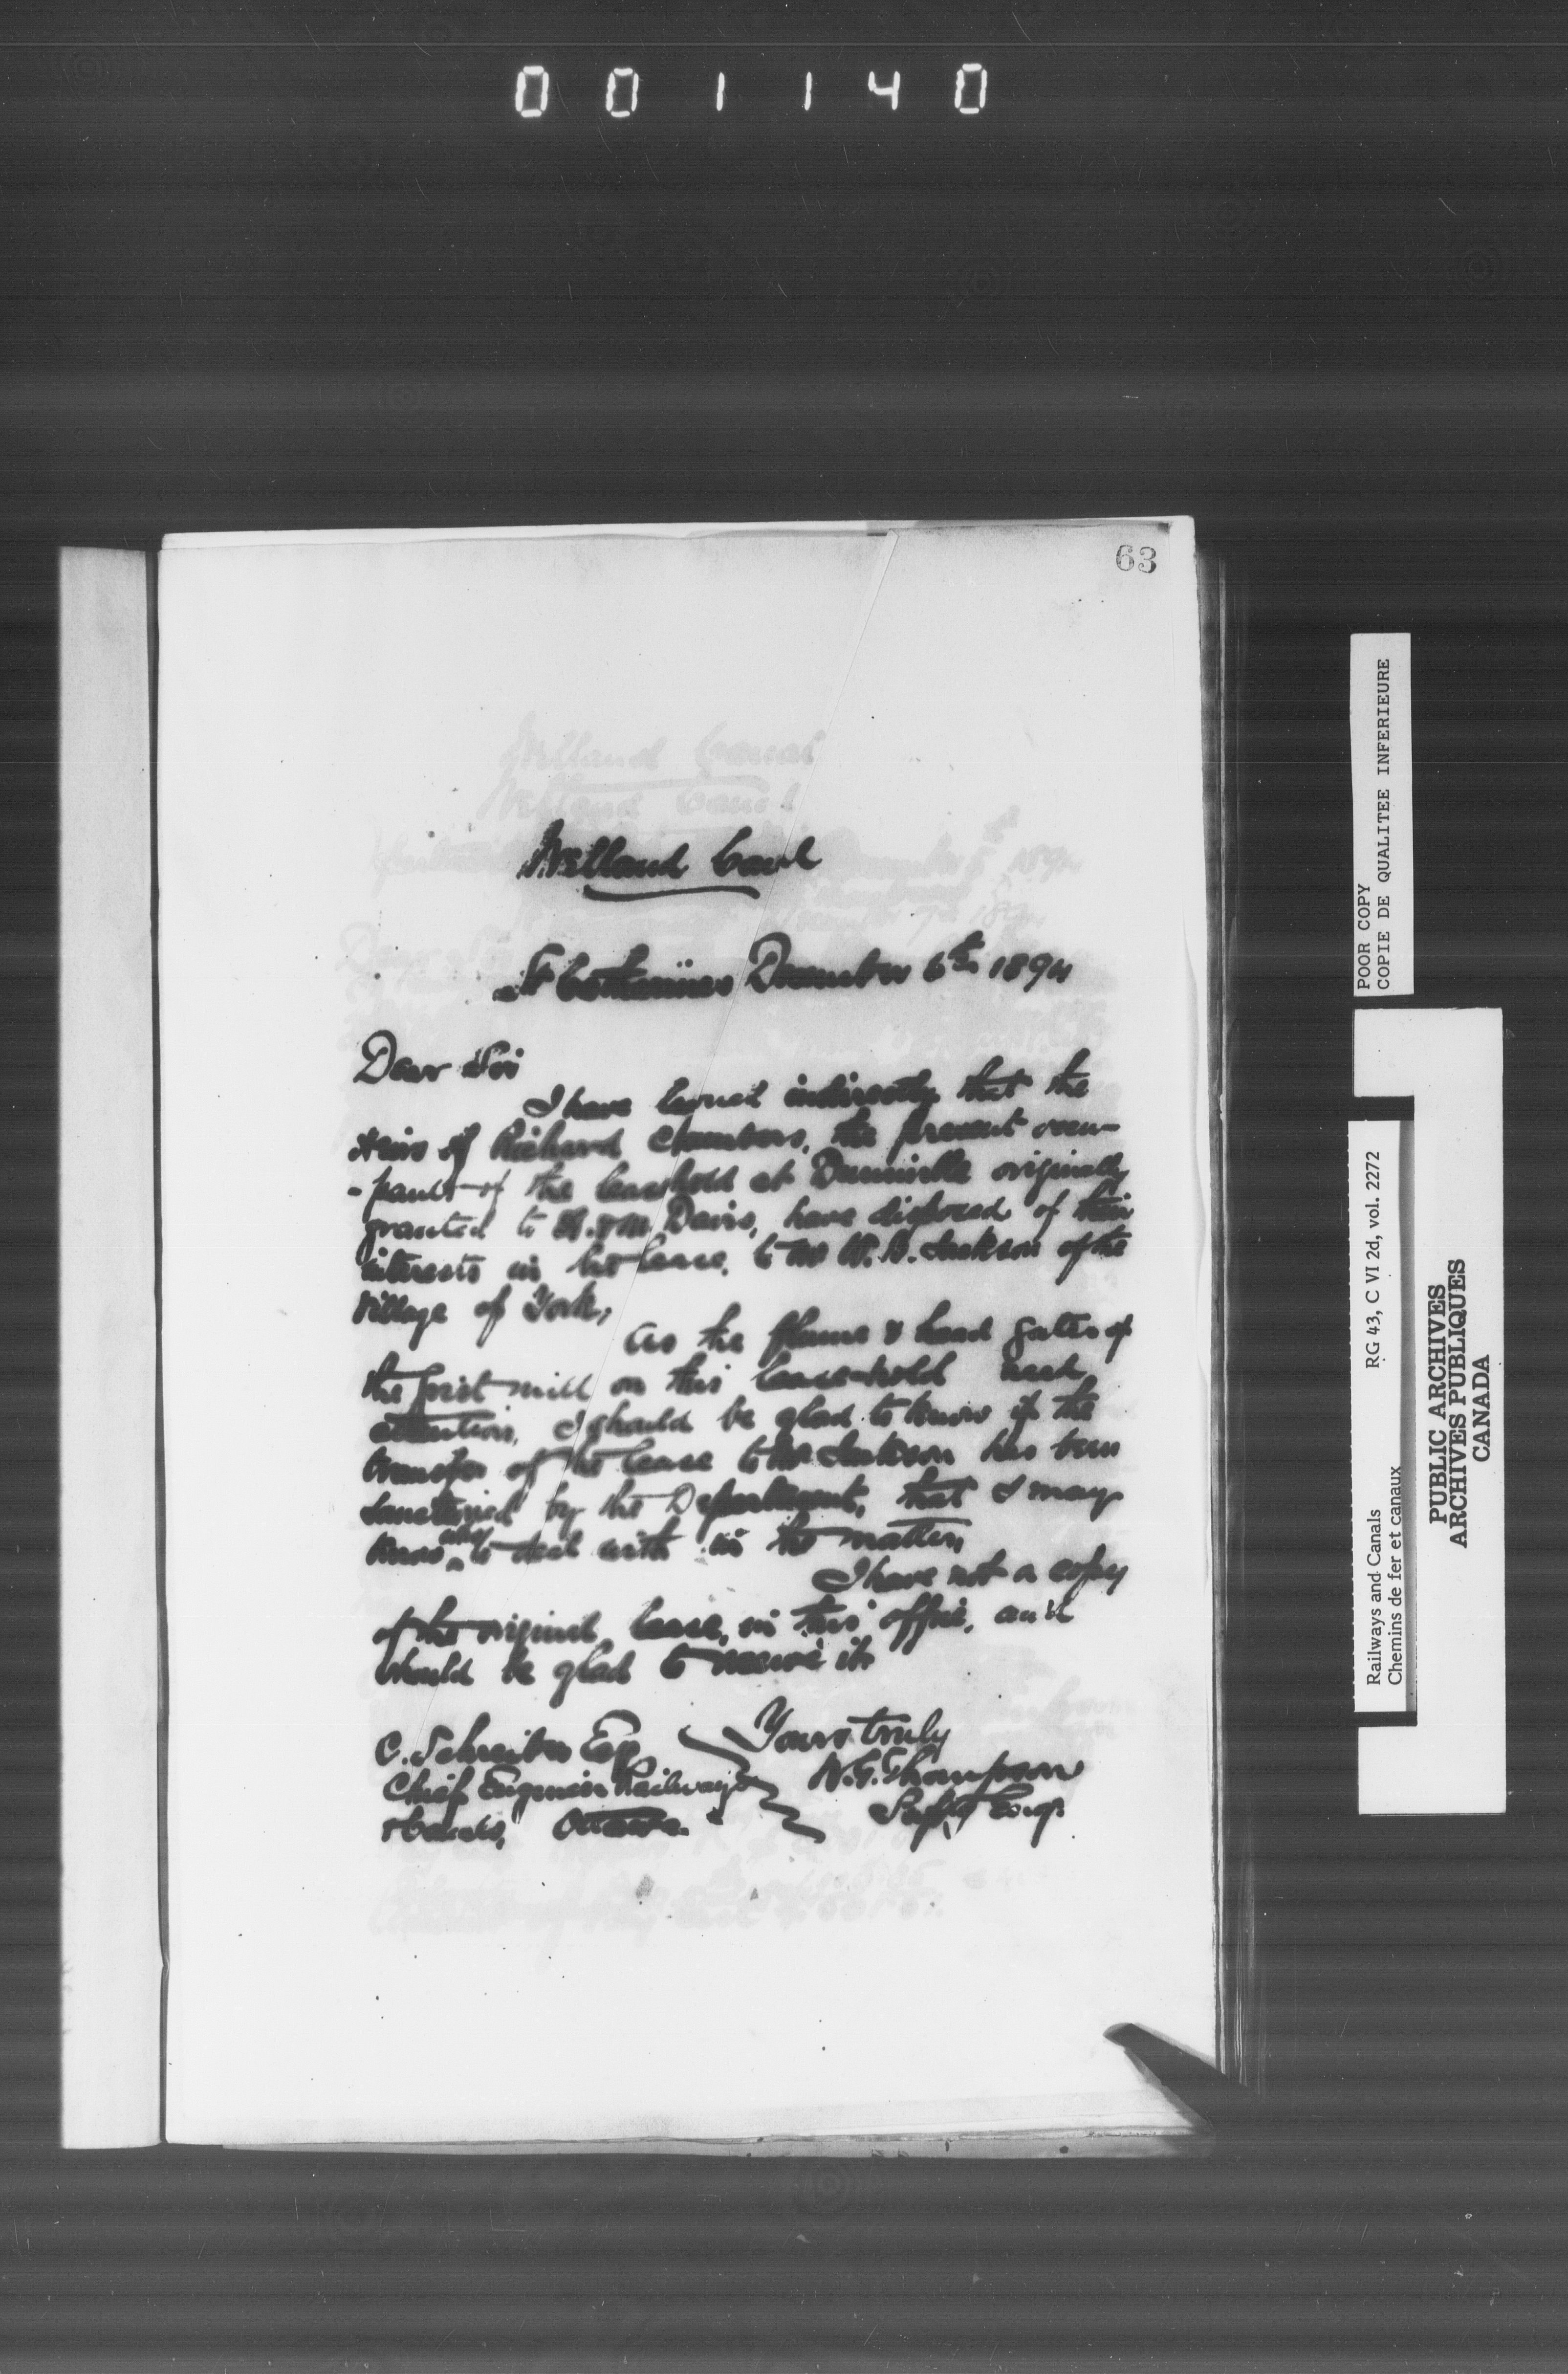 001140
63
Welland Canal
St Catharines December 6th 1894
Dear Sir
I have learned indirectly that the
Heirs of Richard Chambers, the present occu-
-pants of the leasehold at Dunnville originally
granted to A. & M. Davis, have disposed of their
interests in the lease, to Mr W. B. Jackson of the
Village of York,
As the flume & head gates of
the grist mill on this lease-hold need
attention, I should be glad to know if the
transfer of the lease to Mr Jackson has been
sanctioned by the Department, that I may
know who to deal with in the matter,
I have not a copy
of the original lease, in this office, and
should be glad to receive it.
Yours truly
W. G. Thompson
Supt Eng.
C. Schreiber Esq
Chief Engineer Railways
& Canals, Ottawa.
POOR COPY
COPIE DE QUALITEE INFERIEURE
Railways and Canals RG 43, C VI 2d, vol. 2272
Chemins de fer et canaux
PUBLIC ARCHIVES
ARCHIVES PUBLIQUES
CANADA